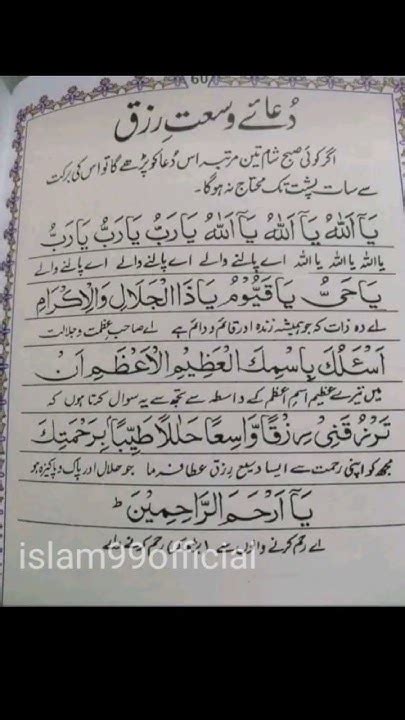 60
دُعائے وسعتِ رزق
اگر کوئی صبح شام تین مرتبہ اس دُعا کو پڑھے گا تو اس کی برکت
سے سات پشت تک محتاج نہ ہوگا۔
يَآ اَللهُ يَآ اَللهُ يَآ اَللهُ يَارَبُّ يَارَبُّ يَارَبُّ
یا اللہ یا اللہ یا اللہ اے پالنے والے اے پالنے والے اے پالنے والے
يَاحَيُّ يَاقَيُّوْمُ يَاذَا الْجَلَالِ وَالْاِكْرَامِ
اے وہ ذات کہ جو ہمیشہ زندہ اور قائم و دائم ہے اے صاحبِ عظمت و جلالت
اَسْئَلُكَ بِاسْمِكَ الْعَظِيْمِ الْاَعْظَمِ اَنْ
میں تیرے عظیم اسمِ اعظم کے واسطہ سے تجھ سے یہ سوال کرتا ہوں کہ
تَرْزُقَنِيْ رِزْقًا وَّاسِعًا حَلٰلًا طَيِّبًا بِرَحْمَتِكَ
مجھ کو اپنی رحمت سے ایسا وسیع رزق عطا فرما جو حلال اور پاک و پاکیزہ ہو
يَآ اَرْحَمَ الرَّاحِمِيْنَ ط
اے رحم کرنے والوں سے
islam99official